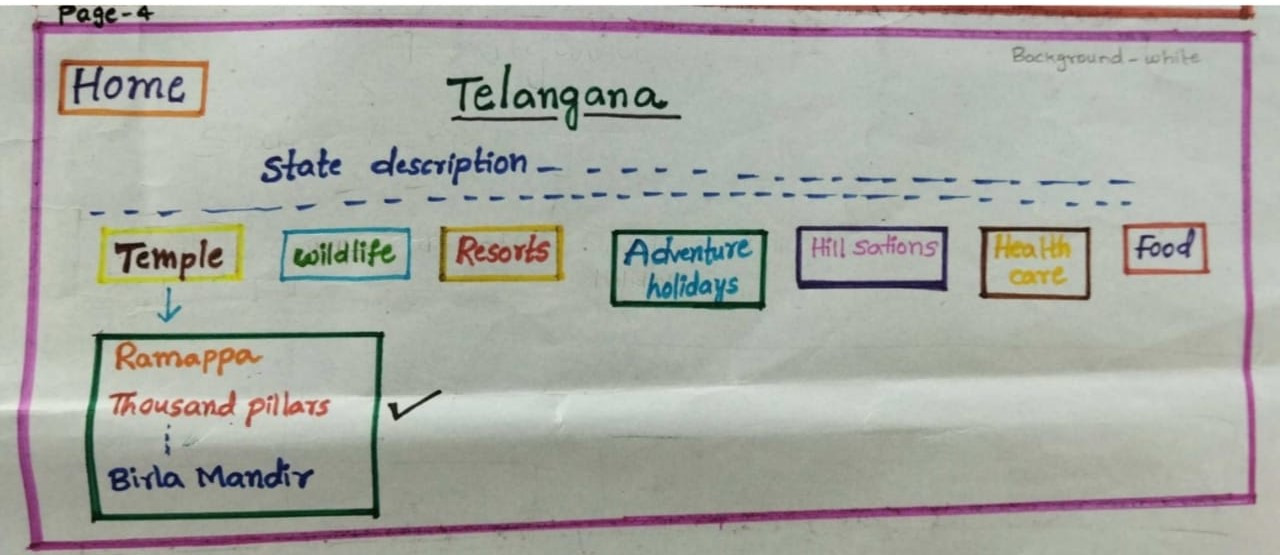 Page-4
Background - white
Home
Telangana
State description
Temple
wildlife
Resorts
Adventure
holidays
Hill sations
Health
care
Food
Ramappa
Thousand pillars
Birla Mandir